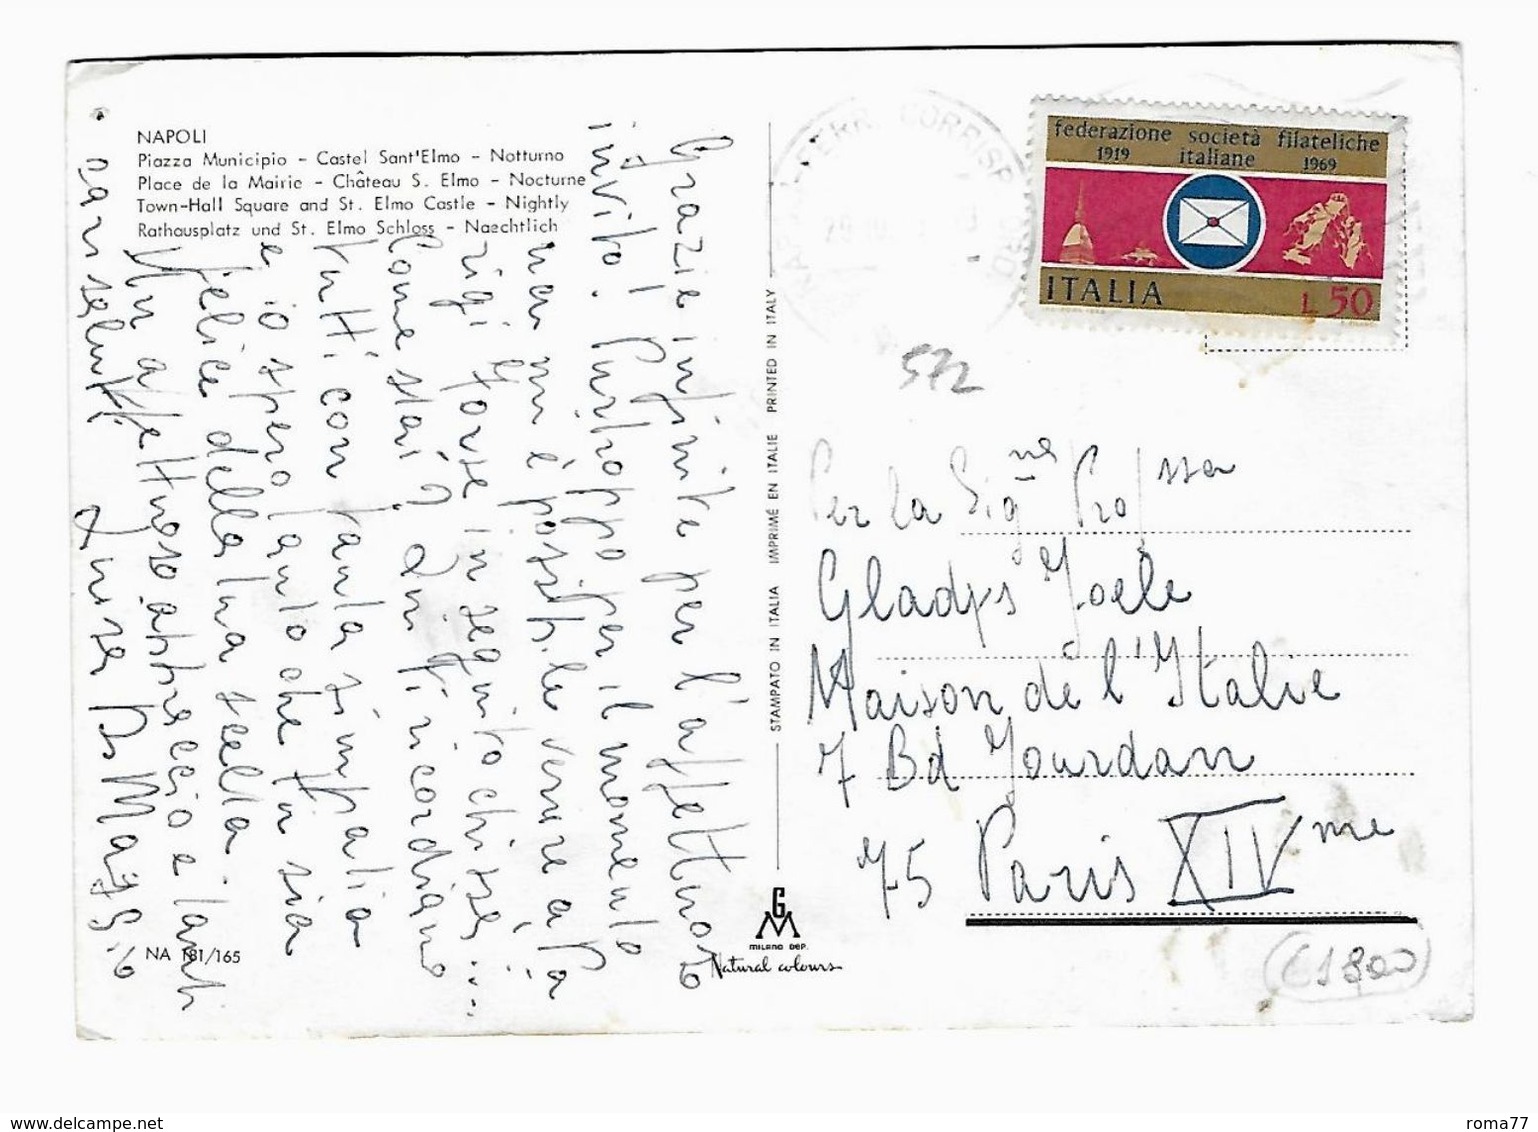 NAPOLI
Piazza Municipio - Castel Sant'Elmo - Notturno
Place de la Mairie - Château S. Elmo - Nocturne
Town-Hall Square and St. Elmo Castle - Nightly
Rathausplatz und St. Elmo Schloss - Naechtlich
Grazie infinite per l'affettuoso
invito! Purtroppo per il momento
non mi è possibile venire a Pa
rigi forse in seguito chissà...
Come stai? Qui ti ricordiamo
tutti con tanta simpatia
e io spero tanto che tu sia
felice della tua scelta.
Un affettuoso abbraccio e tanti
cari saluti. Luisa Di Maggio
NA 181/165
STAMPATO IN ITALIA IMPRIMÉ EN ITALIE PRINTED IN ITALY
GM
MILANO DEP.
Natural colours
FERR. CORRISP.
29.10.
federazione società filateliche
1919 italiane 1969
ITALIA L.50
572
Per la Sig.na Prof.ssa
Gladys Joele
Maison de l'Italie
7 Bd Jourdan
75 Paris XIV me
(€1800)
delcampe.net
roma77